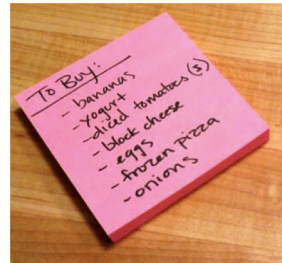 To Buy:
- bananas
- yogurt
- diced tomatoes (5)
- block cheese
- eggs
- frozen pizza
- onions